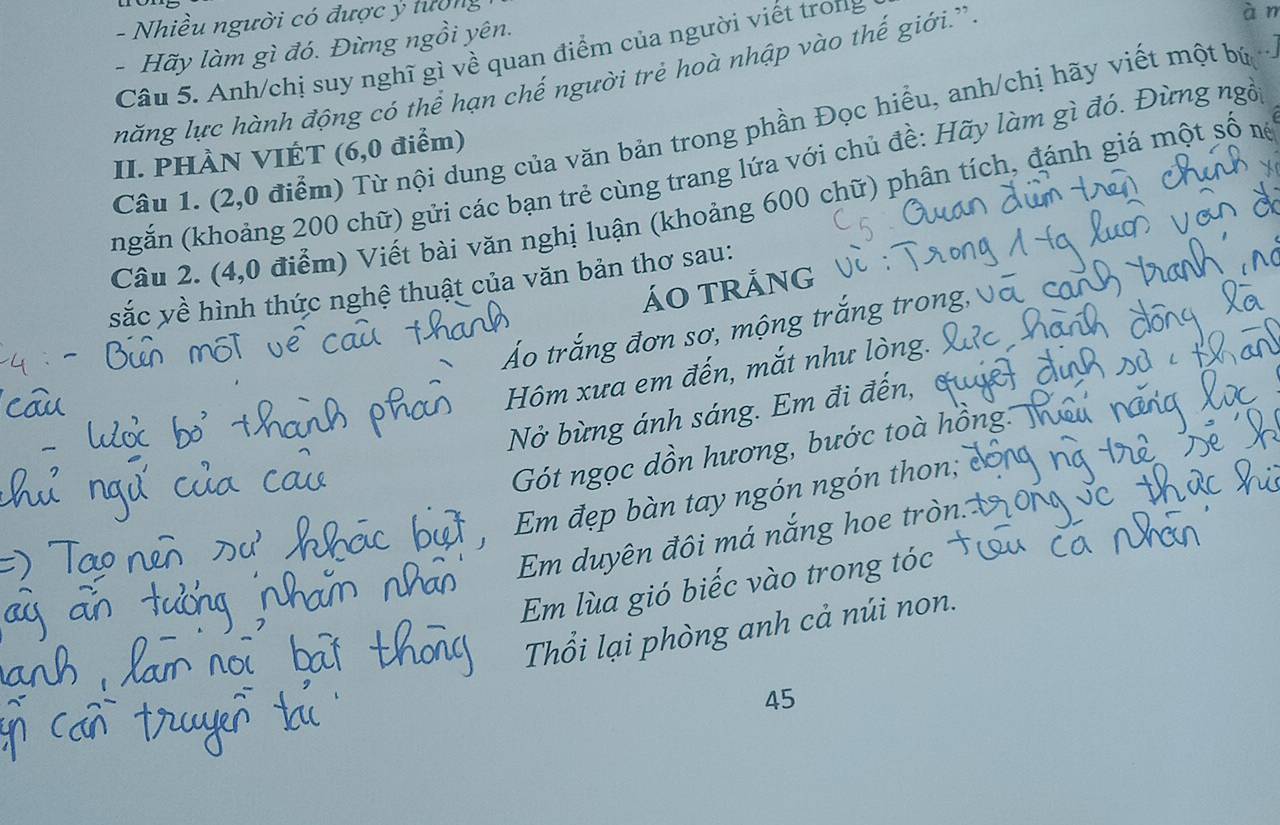 - Nhiều người có được ý tưởng
- Hãy làm gì đó. Đừng ngồi yên.
Câu 5. Anh/chị suy nghĩ gì về quan điểm của người viết trong
năng lực hành động có thể hạn chế người trẻ hoà nhập vào thế giới.”.
II. PHẦN VIẾT (6,0 điểm)
Câu 1. (2,0 điểm) Từ nội dung của văn bản trong phần Đọc hiểu, anh/chị hãy viết một
ngắn (khoảng 200 chữ) gửi các bạn trẻ cùng trang lứa với chủ đề: Hãy làm gì đó. Đừng ngồi
Câu 2. (4,0 điểm) Viết bài văn nghị luận (khoảng 600 chữ) phân tích, đánh giá một số
sắc về hình thức nghệ thuật của văn bản thơ sau:
ÁO TRẮNG
Áo trắng đơn sơ, mộng trắng trong,
Hôm xưa em đến, mắt như lòng.
Nở bừng ánh sáng. Em đi đến,
Gót ngọc dồn hương, bước toà hồng.
Em đẹp bàn tay ngón ngón thon;
Em duyên đôi má nắng hoe tròn.
Em lùa gió biếc vào trong tóc
Thổi lại phòng anh cả núi non.
C5: Quan điểm trên chính
Vì: Trong 1 tg luôn vận
và cạnh tranh,
lực hành động là
quyết định sự thành
Thiếu năng lực
động ng trẻ sẽ
trong vc thực
tiêu cá nhân
4: - Biến một vế câu thành
câu
- Lược bỏ thành phần
chủ ngữ của câu
=) Tạo nên sự khác biệt,
ấn tượng, nhằm nhấn
, làm nổi bật thông
cần truyền tải
45